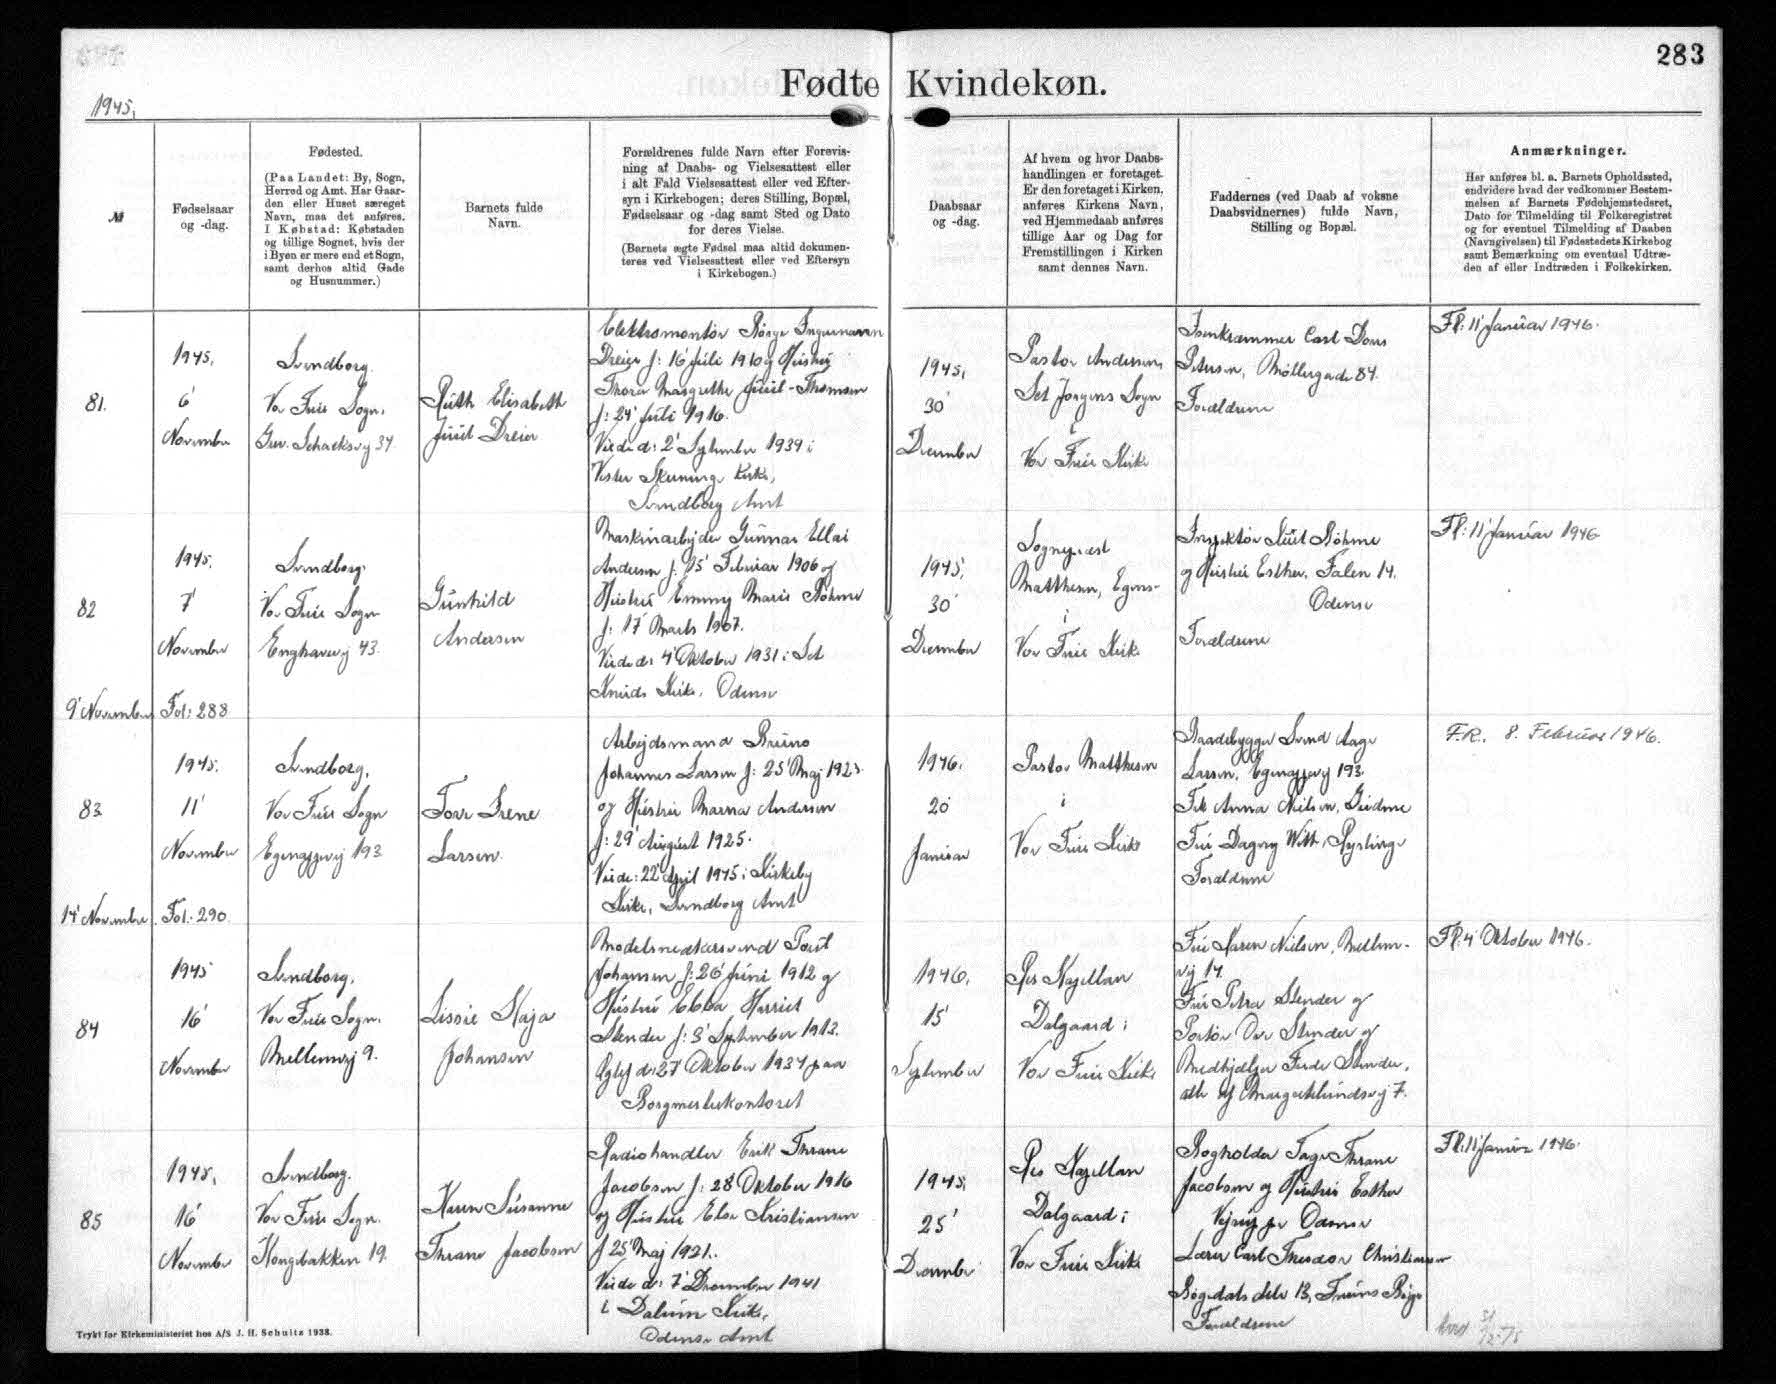 283
Fødte Kvindekøn.
1945.
№
Fødselsaar
og -dag.
Fødested.
(Paa Landet: By, Sogn,
Herred og Amt. Har Gaar-
den eller Huset særeget
Navn, maa det anføres.
I Købstad: Købstaden
og tillige Sognet, hvis der
i Byen er mere end et Sogn,
samt derhos altid Gade
og Husnummer.)
Barnets fulde
Navn.
Forældrenes fulde Navn efter Forevis-
ning af Daabs- og Vielsesattest eller
i alt Fald Vielsesattest eller ved Efter-
syn i Kirkebogen; deres Stilling, Bopæl,
Fødselsaar og -dag samt Sted og Dato
for deres Vielse.
(Barnets ægte Fødsel maa altid dokumen-
teres ved Vielsesattest eller ved Eftersyn
i Kirkebogen.)
Daabsaar
og -dag.
Af hvem og hvor Daabs-
handlingen er foretaget.
Er den foretaget i Kirken,
anføres Kirkens Navn,
ved Hjemmedaab anføres
tillige Aar og Dag for
Fremstillingen i Kirken
samt dennes Navn.
Faddernes (ved Daab af voksne
Daabsvidnernes) fulde Navn,
Stilling og Bopæl.
Anmærkninger.
Her anføres bl. a. Barnets Opholdssted,
endvidere hvad der vedkommer Bestem-
melsen af Barnets Fødehjemstedsret,
Dato for Tilmelding til Folkeregistret
og for eventuel Tilmelding af Daaben
(Navngivelsen) til Fødestedets Kirkebog
samt Bemærkning om eventuel Udtræ-
den af eller Indtræden i Folkekirken.
81.
1945.
6'
November
Svendborg.
Vor Frue Sogn.
Grev. Schacksvej 34.
Ruth Elisabeth
Juul Dreier
Elektromontør Børge Ingemann
Dreier f: 16' Juli 1910 og Hustru
Thora Margrethe Juul-Thomsen
f: 24' Juli 1916.
Viede d: 2' September 1939 i
Vester Skerninge Kirke,
Svendborg Amt
1945.
30'
December
Pastor Andersen,
Sct Jørgens Sogn
i
Vor Frue Kirke
Isenkræmmer Carl Dons
Petersen, Møllergade 84.
Forældrene
FR: 11' Januar 1946.
82
1945.
7'
November
Svendborg.
Vor Frue Sogn
Enghavevej 43.
Gunhild
Andersen
Maskinarbejder Gunnar Ellai
Andersen f: 15' Februar 1906 og
Hustru Emmy Marie Böhme
f: 17' Marts 1907.
Viede d: 4' Oktober 1931 i Sct
Knuds Kirke, Odense
1945.
30'
December
Sognepræst
Matthesen, Egens-
i
Vor Frue Kirke
Inspektør Knut Böhme
og Hustru Esther, Falen 14.
Odense
Forældrene
FR: 11' Januar 1946
9' November Fol: 288
83.
1945.
11'
November
Svendborg.
Vor Frue Sogn
Egensevej 193
Tove Irene
Larsen.
Arbejdsmand Bruno
Johannes Larsen f: 25' Maj 1923
og Hustru Marna Andersen
f: 29' August 1925.
Viede: 22' April 1945 i Kirkeby
Kirke, Svendborg Amt
1946.
20'
Januar
Pastor Matthesen
i
Vor Frue Kirke
Baadebygger Svend Aage
Larsen, Egensevej 193
Frk Anna Nielsen, Gudme
Fru Dagny Witt, Ryslinge
Forældrene
F.R. 8. Februar 1946.
14' November Fol: 290
84
1945
16'
November
Svendborg.
Vor Frue Sogn.
Mellemvej 9.
Lissie Kaja
Johansen
Modelsnedkersvend Poul
Johansen f: 26' Juni 1912 og
Hustru Ebba Harriet
Stender f: 3' September 1913.
Ægtef d: 27' Oktober 1937 paa
Borgmesterkontoret
1946.
15'
September
Res Kapellan
Dalgaard i
Vor Frue Kirke
Fru Karen Nielsen, Mellem-
vej 14.
Fru Petra Stender og
Portør Ove Stender og
Medhjælper Stender,
alle af 7.
FR: 4' Oktober 1946.
85
1945.
16'
November
Svendborg.
Vor Frue Sogn.
Kongebakken 19.
Karen Susanne
Thrane Jacobsen
Radiohandler Erik Thrane
Jacobsen f: 28' Oktober 1916
og Hustru Else Kristiansen
f 25' Maj 1921.
Viede d: 7' December 1941
i Dalum Kirke,
Odense Amt
1945.
25'
December
Res Kapellan
Dalgaard i
Vor Frue Kirke
Bogholder Tage Thrane
Jacobsen og Hustru Esther
Vejrup pr Odense
Lærer Carl Theodor Christiansen
13, Fruens Bøge
Forældrene
FR: 11' Januar 1946.
Trykt for Kirkeministeriet hos A/S J. H. Schultz 1938.